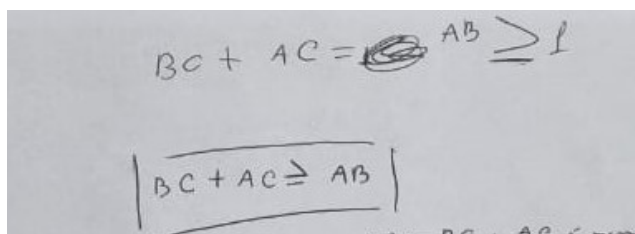 BC + AC = AB ≥ 1
BC + AC ≥ AB